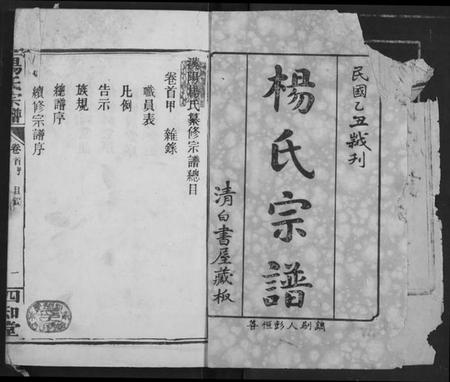 民國乙丑㦸刊
楊氏宗譜
清白書屋藏板
鐫刷人彭恒善
漢陽楊氏纂修宗譜總目
卷首甲 雜錄
職員表
凡例
告示
族規
總譜序
續修宗譜序
楊氏宗譜
卷首甲 目錄
一
四知堂